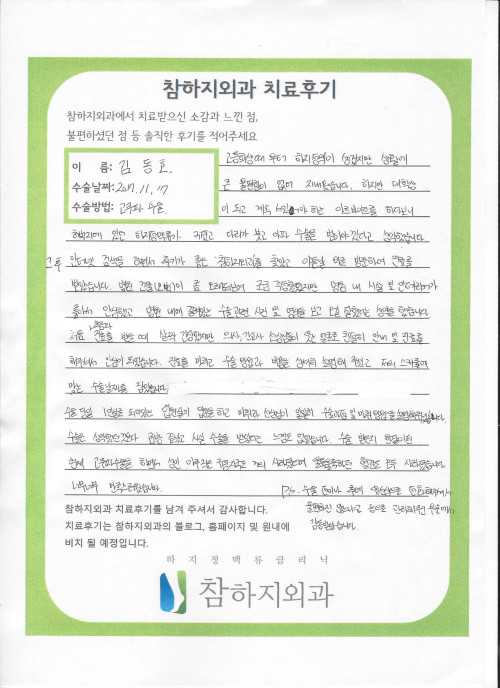 참하지외과 치료후기
참하지외과에서 치료받으신 소감과 느낀 점,
불편하셨던 점 등 솔직한 후기를 적어주세요
이 름: 김동호
수술날짜: 2017. 11. 17
수술방법: 고주파 수술
고등학생때 부터 하지정맥이 생겼지만 생활에
큰 불편함이 없어 지내왔습니다. 하지만 대학생
이 되고 계속 서있어야 하는 아르바이트를 하다보니
허벅지에 있던 하지정맥류가 커졌고 다리가 붓고 아파 수술을 받아야겠다고 생각했습니다.
그 후 인터넷 검색을 하면서 후기가 좋은 참하지외과를 찾았고 이튿날 바로 방문하여 진료를
받았습니다. 병원 건물 이 좀 오래되보여 조금 걱정했지만 병원 내 시설 및 인테리어가
좋아서 안심했고 병원 내에 걸려있는 수술관련 사진 및 설명을 보고 잘 왔다는 생각을 했습니다.
처음 초음파 진료를 받을 때 살짝 긴장했지만 의사, 간호사 선생님들이 웃는 얼굴로 친절히 안내 및 진료를
해주셔서 안심이 되었습니다. 진료를 마치고 수술 방법과 비용을 상세히 설명해 주셨고 저의 스케줄에
맞는 수술날짜를 잡았습니다.
수술 당일 1인실로 되어있는 입원실에 입원을 하고 마취과 선생님이 친절히 수술과정 및 마취 방법을 설명해주셨습니다.
수술은 생각했던것보다 금방 끝났고 사실 수술을 받았다는 느낌도 없었습니다. 수술 받은지 한달이된
현재 고주파수술을 하면서 생긴 이물감은 거의 사라졌으며 울퉁불퉁하던 혈관도 모두 사라졌습니다.
너무너무 만족스럽습니다.
P.S. 수술 후
불편하진 않으냐고 문으로 관리해주신 부분에서
감동받았습니다.
참하지외과 치료후기를 남겨 주셔서 감사합니다.
치료후기는 참하지외과의 블로그, 홈페이지 및 원내에
비치 될 예정입니다.
하지정맥류클리닉
참하지외과